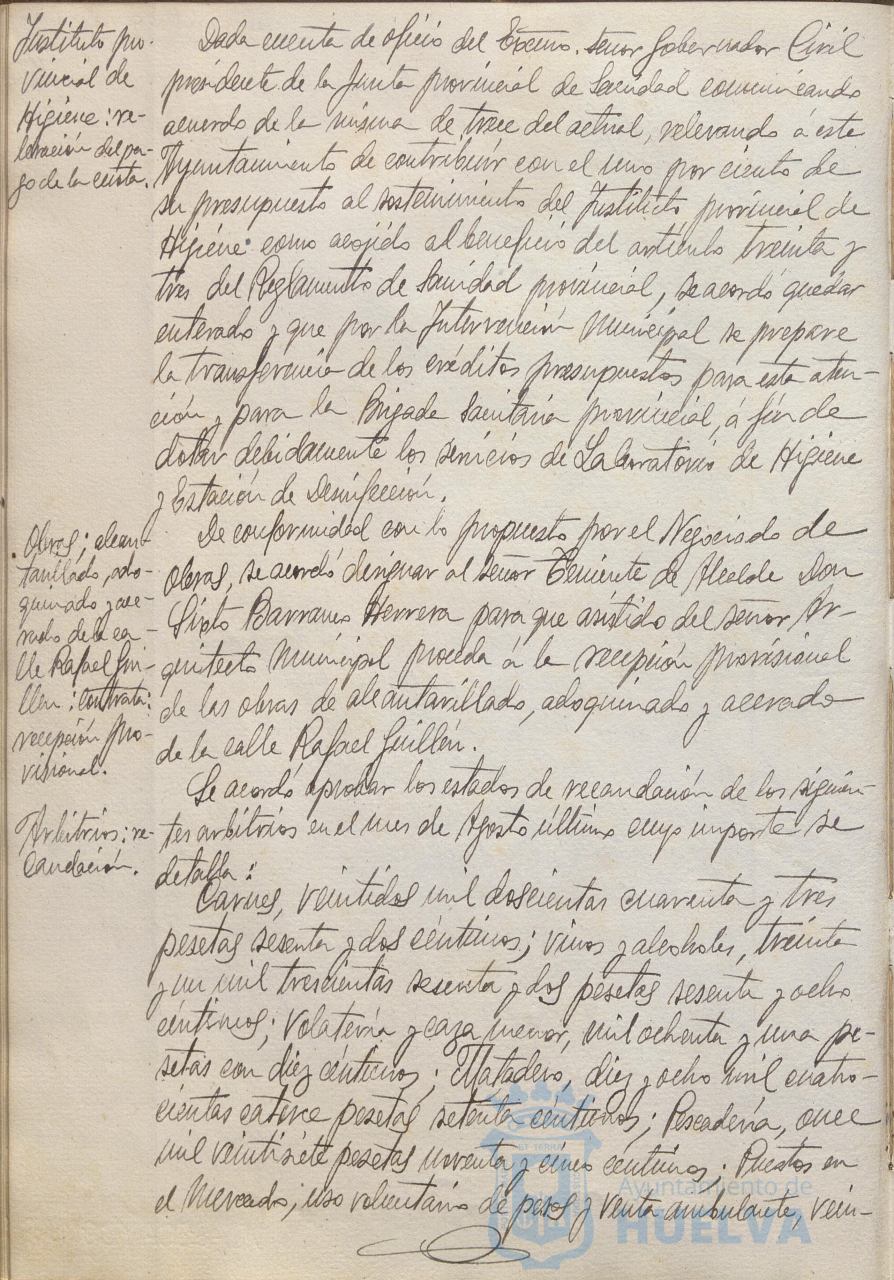 Instituto pro-
vincial de
Higiene: re-
levación del pa-
go de la cuota.
Dada cuenta de oficio del Excmo. señor Gobernador Civil
presidente de la Junta provincial de Sanidad comunicando
acuerdo de la misma de trece del actual, relevando á este
Ayuntamiento de contribuir con el uno por ciento de
su presupuesto al sostenimiento del Instituto provincial de
Higiene como acojido al beneficio del artículo treinta y
tres del Reglamento de Sanidad provincial, se acordó quedar
enterado y que por la Intervención Municipal se prepare
la transferencia de los créditos presupuestos para esta aten-
ción y para la Brigada Sanitaria provincial, á fin de
dotar debidamente los servicios de Laboratorio de Higiene
y Estación de Desinfección.
Obras; alcan-
tarillado, ado-
quinado y ace-
rado de la ca-
lle Rafael Gui-
llen; contrata:
recepción pro-
visional.
De conformidad con lo propuesto por el Negociado de
Obras, se acordó designar al señor Teniente de Alcalde Don
Sixto Barranco Herrera para que asistido del señor Ar-
quitecto Municipal proceda á la recepción provisional
de las obras de alcantarillado, adoquinado y acerado
de la calle Rafael Guillén.
Arbitrios: re-
caudación.
Se acordó aprobar los estados de recaudación de los siguien-
tes arbitrios en el mes de Agosto último cuyo importe se
detalla:
Carnes, veintidos mil doscientas cuarenta y tres
pesetas sesenta y dos céntimos; vinos y alcoholes, treinta
y un mil trescientas sesenta y dos pesetas sesenta y ocho
céntimos; volatería y caza menor, mil ochenta y una pe-
setas con diez céntimos; Matadero, diez y ocho mil cuatro-
cientas catorce pesetas setenta céntimos; Pescadería, once
mil veintisiete pesetas noventa y cinco céntimos; Puestos en
el Mercado; uso voluntario de pesos y venta ambulante, vein-
Ayuntamiento de
HUELVA